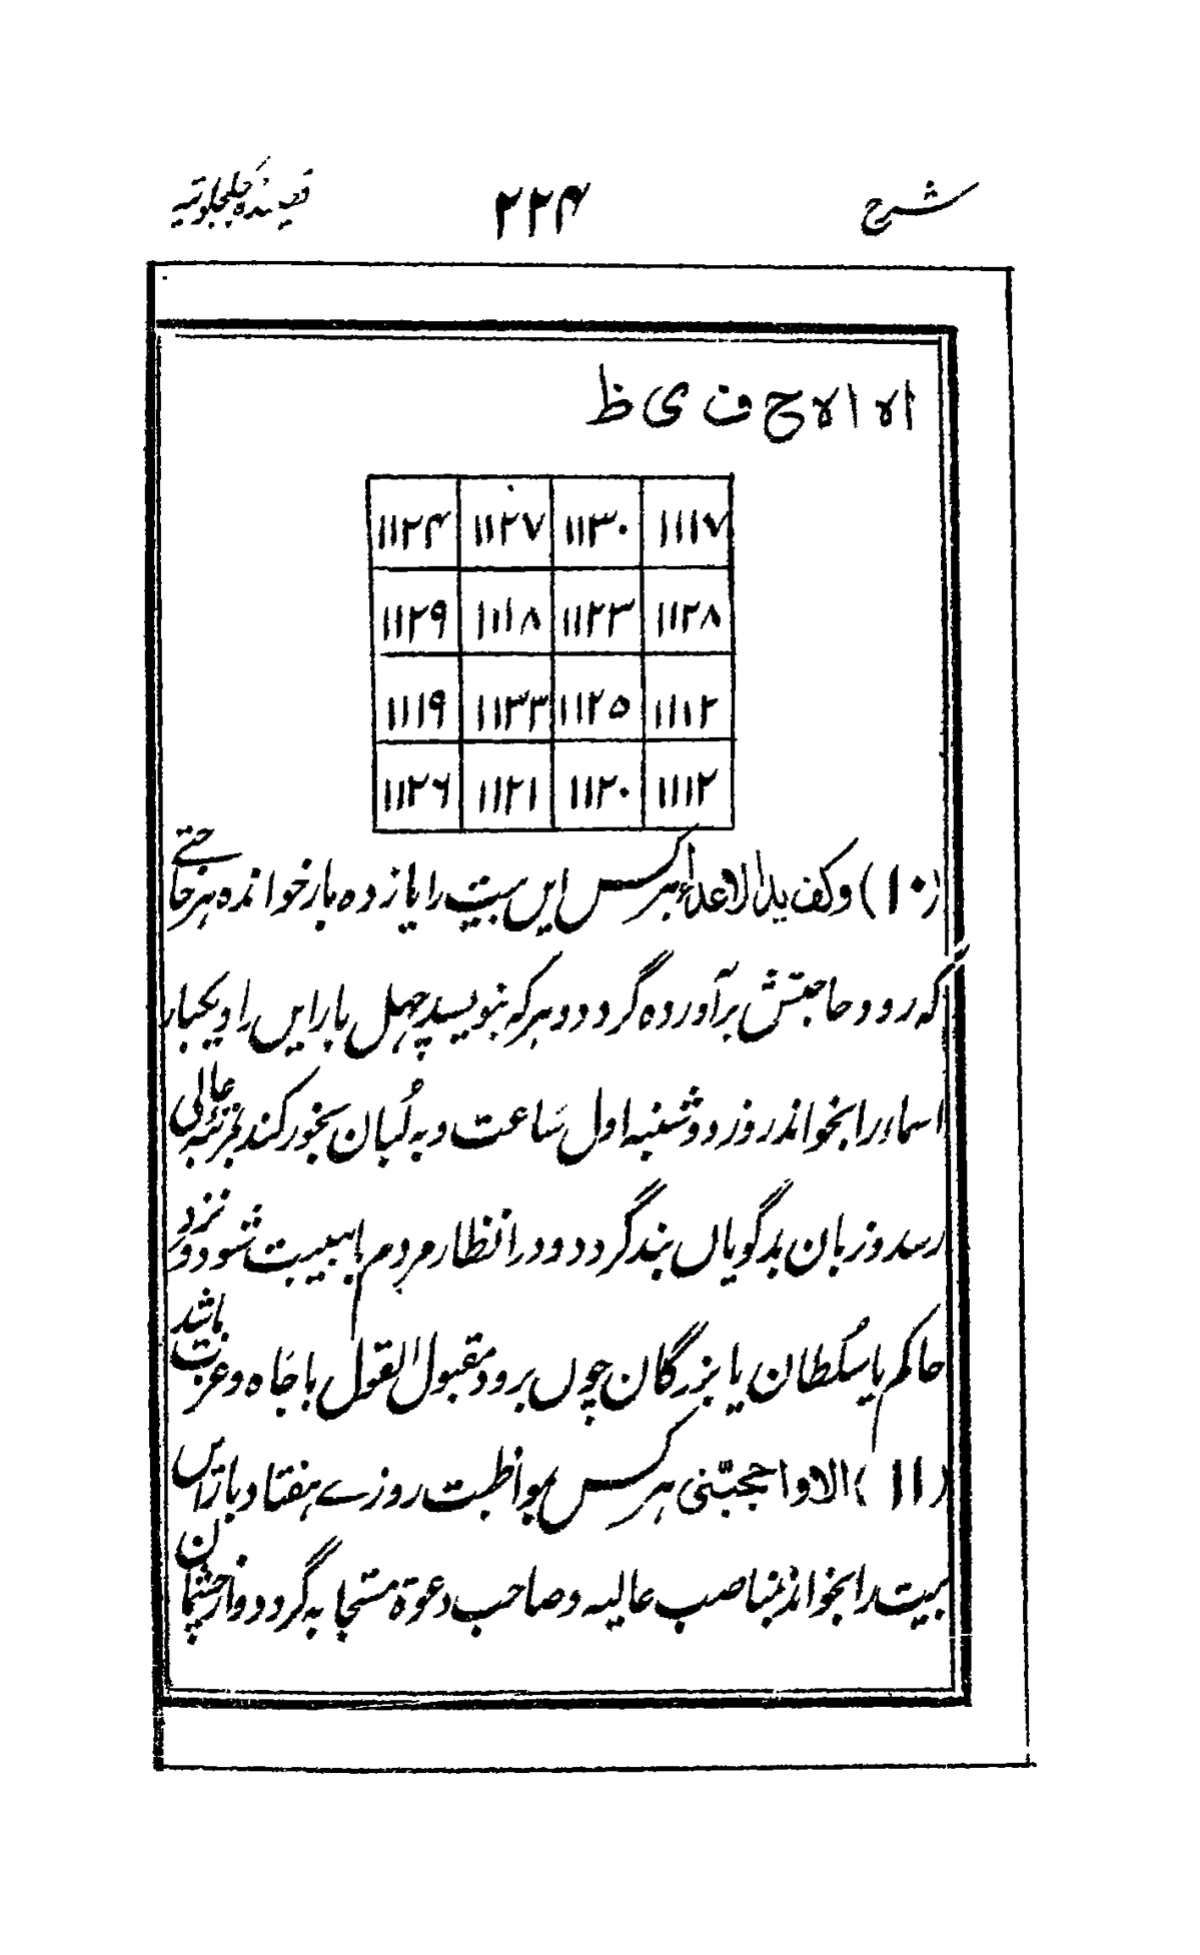 شرح ۲۲۴ قصیدہ جلجلوتیہ
ا ہ ا ا ہ ح ف ی ظ
۱۱۲۴ ۱۱۲۷ ۱۱۳۰ ۱۱۱۷
۱۱۲۹ ۱۱۱۸ ۱۱۲۳ ۱۱۲۸
۱۱۱۹ ۱۱۳۳ ۱۱۲۵ ۱۱۱۲
۱۱۲۶ ۱۱۲۱ ۱۱۲۰ ۱۱۱۲
(۱۰) وکف ید الاعداء ہر کس ایں بیت را یازدہ بار خواندہ ہر حاجتے
کہ رود حاجتش برآوردہ گردد و ہر کہ بنویسد چہل بار ایں را و یکبار
اسماء را بخواند روز دوشنبہ اول ساعت و بہ لُبان بخور کند بمرتبہ عالی
رسد و زبان بدگویاں بند گردد و در انظار مردم باہیبت شود و نزد
حاکم یا سُلطان یا بزرگان چوں برود مقبول القول با جاہ و عزت باشد
(۱۱) الا واحجبنّی ہر کس بمواظبت روزے ہفتاد بار ایں
بیت را بخواند بمناصب عالیہ و صاحب دعوۃ مستجابہ گردد و از چشمان